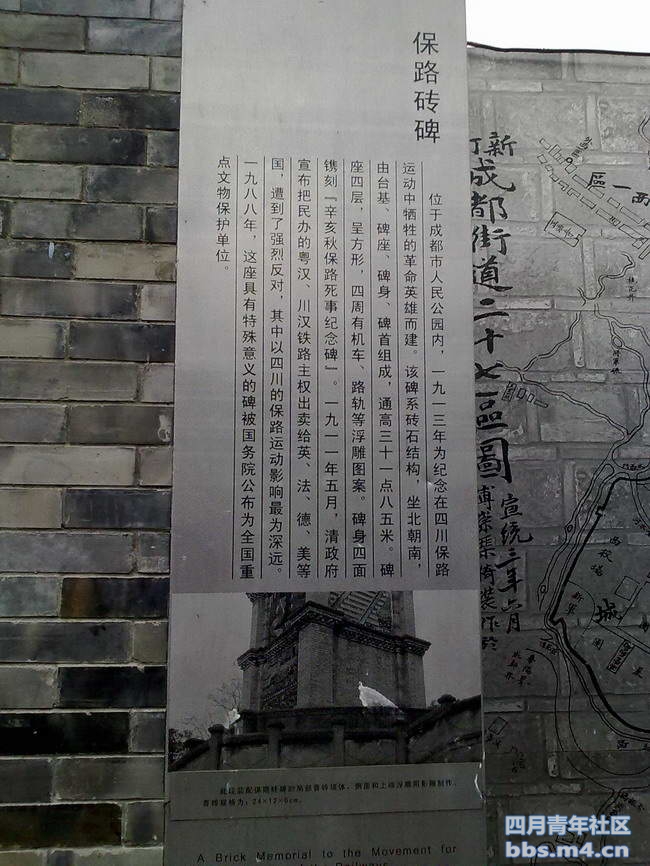 保路砖碑
位于成都市人民公园内，一九一三年为纪念在四川保路
运动中牺牲的革命英雄而建。该碑系砖石结构，坐北朝南，
由台基、碑座、碑身、碑首组成，通高三十一点八五米。碑
座四层，呈方形，四周有机车、路轨等浮雕图案。碑身四面
镌刻『辛亥秋保路死事纪念碑』。一九一一年五月，清政府
宣布把民办的粤汉、川汉铁路主权出卖给英、法、德、美等
国，遭到了强烈反对，其中以四川的保路运动影响最为深远。
一九八八年，这座具有特殊意义的碑被国务院公布为全国重
点文物保护单位。
青砖规格为：24×12×6cm。
A Brick Memorial to the Movement for
新
成都街道二十七區圖
宣統三年六月
西一區
城
四月青年社区
bbs.m4.cn